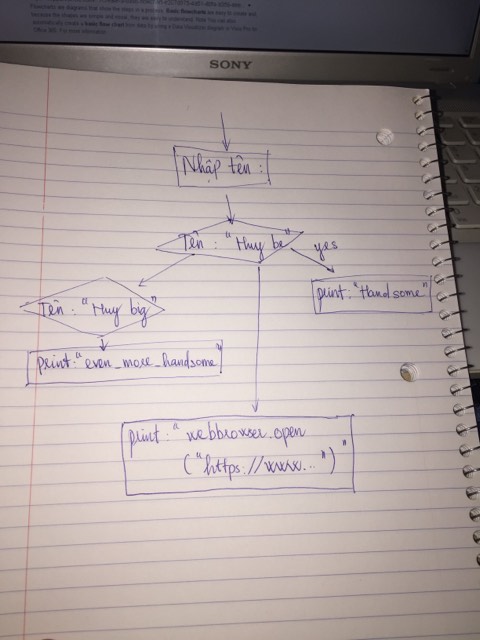 Flowcharts are diagrams that show the steps in a process. Basic flowcharts are easy to create and,
because the shapes are simple and visual, they are easy to understand. Note You can also
automatically create a basic flow chart from data by using a Data Visualizer diagram in Visio Pro for
Office 365. For more information
SONY
Nhập tên :
Tên : "Huy be"
yes
print: "Handsome"
Tên : "Huy big"
print: "even_more_handsome"
print : " webbrowser.open
("https://www...")"